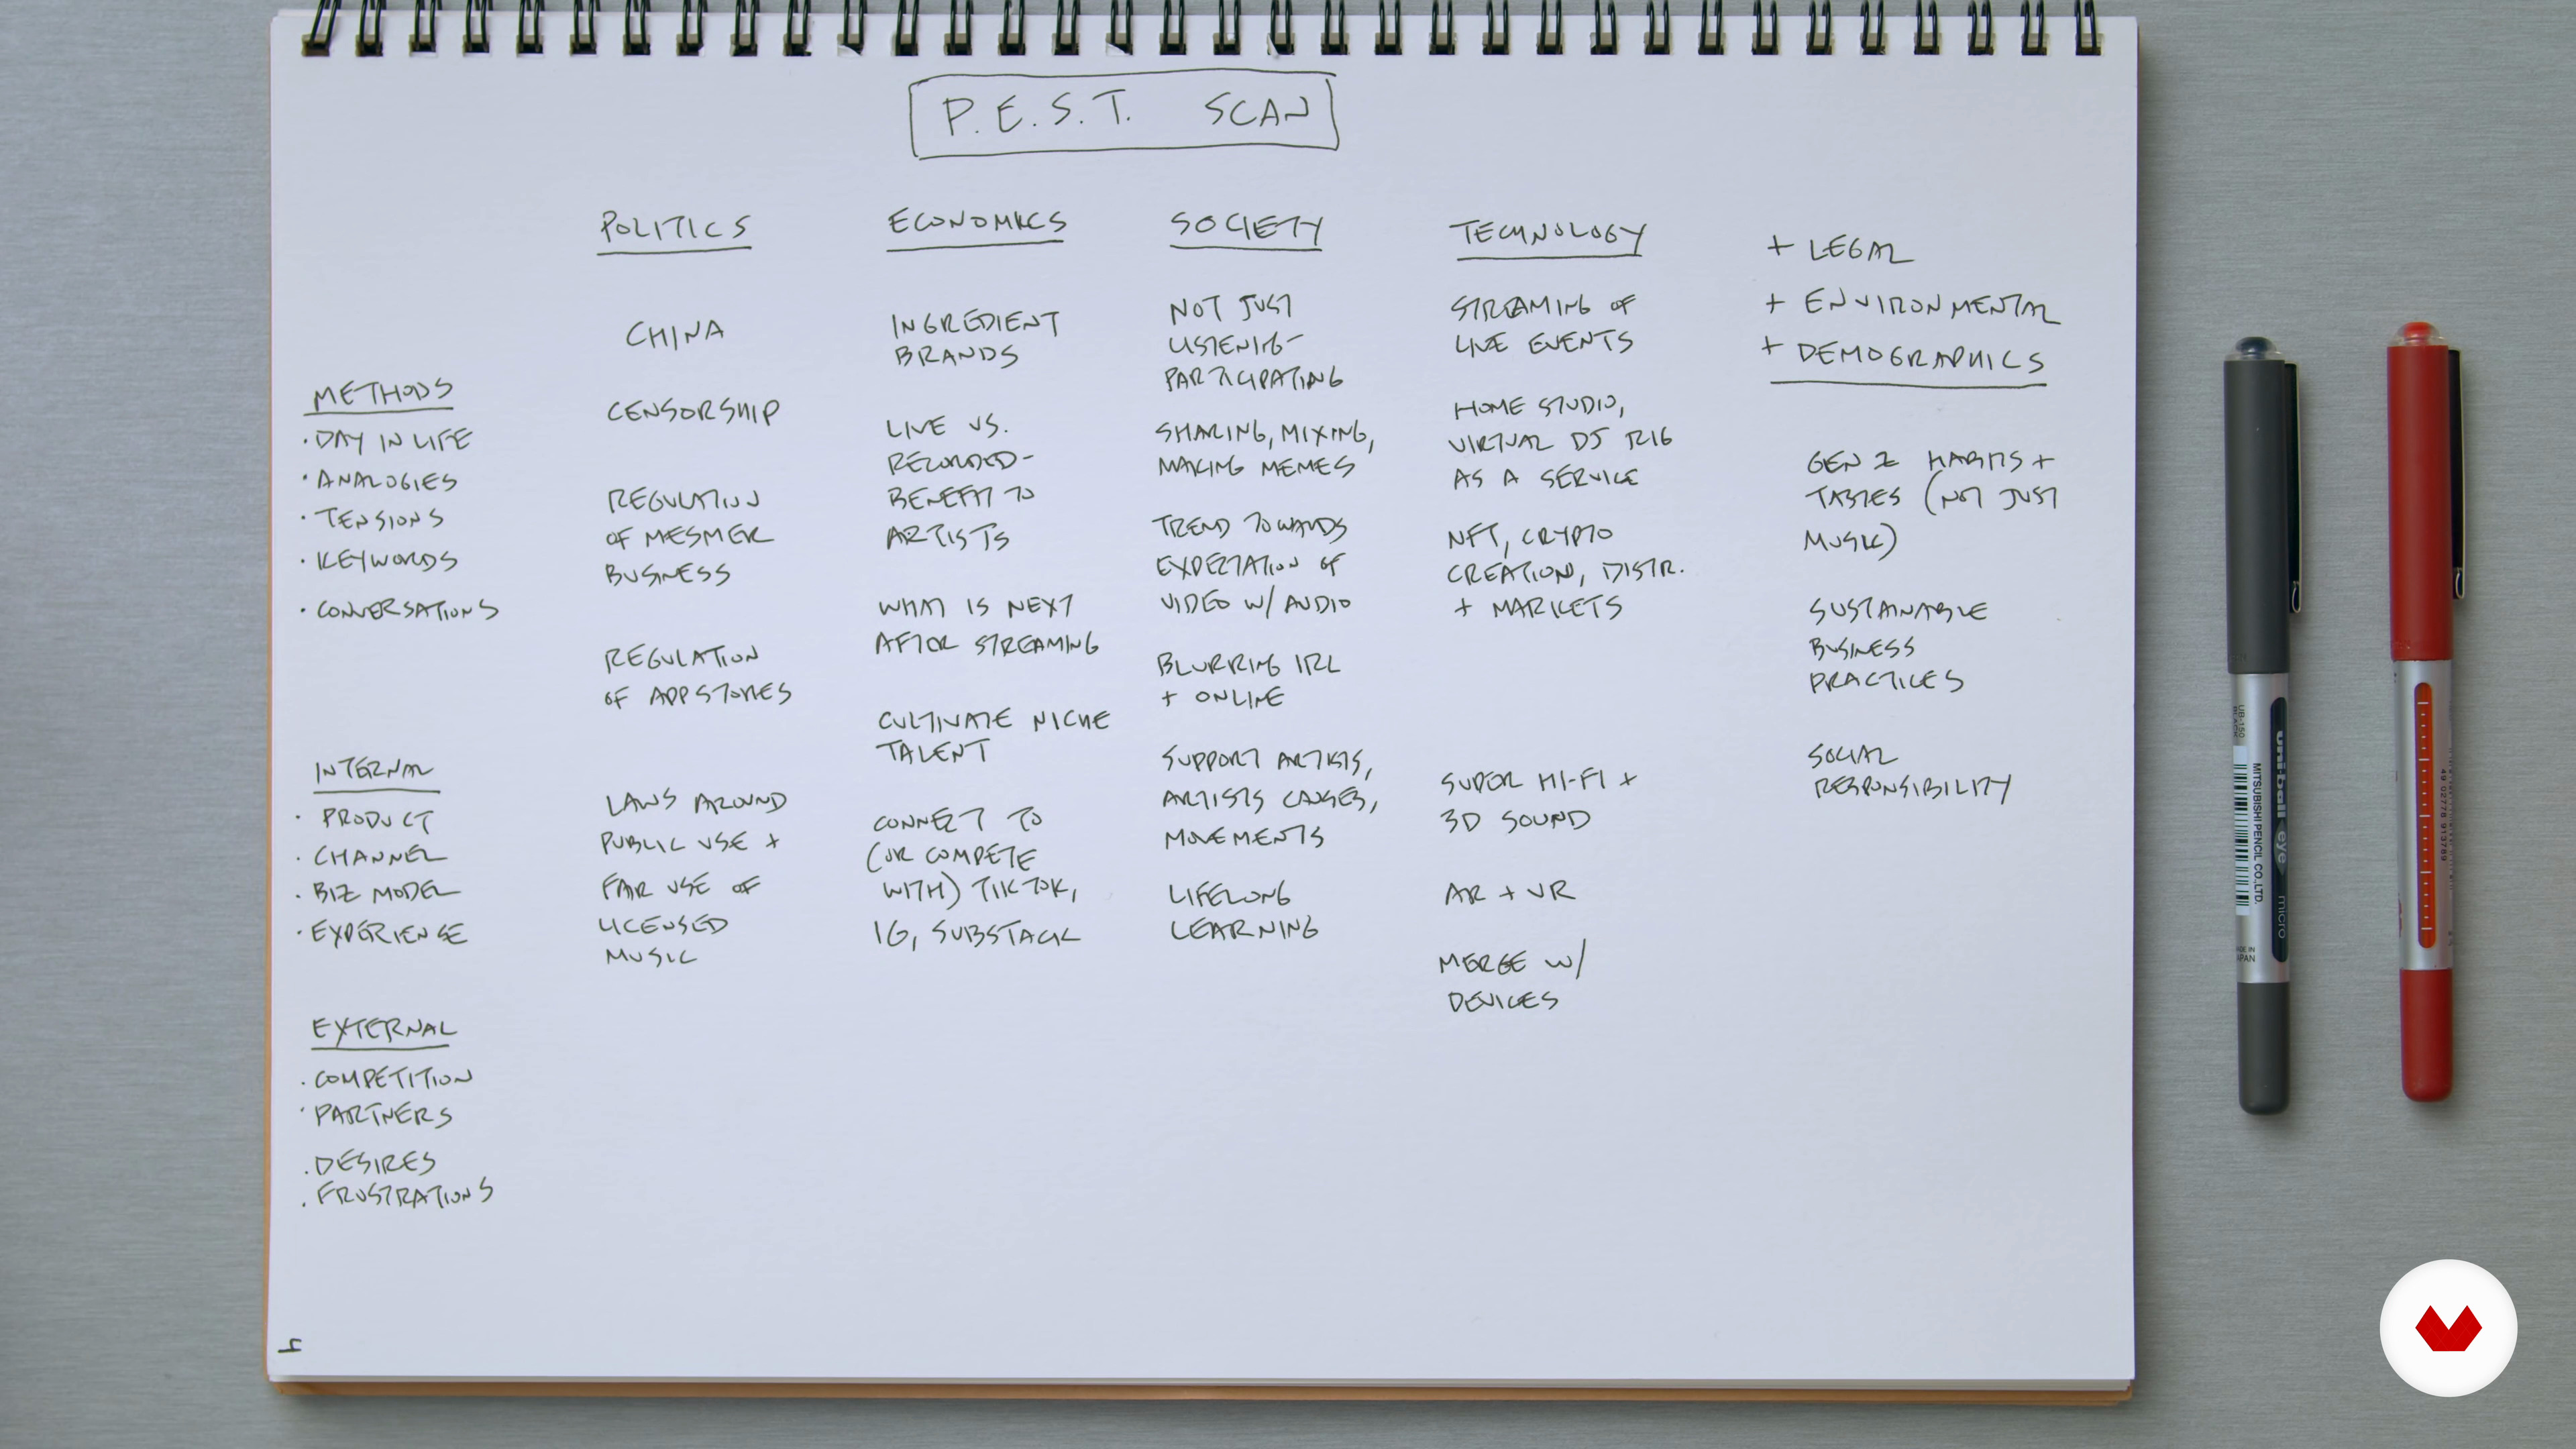 P.E.S.T. SCAN
METHODS
· DAY IN LIFE
· ANALOGIES
· TENSIONS
· KEYWORDS
· CONVERSATIONS
INTERNAL
· PRODUCT
· CHANNEL
· BIZ MODEL
· EXPERIENCE
EXTERNAL
· COMPETITION
· PARTNERS
· DESIRES
· FRUSTRATIONS
POLITICS
CHINA
CENSORSHIP
REGULATION
OF MESMER
BUSINESS
REGULATION
OF APP STORES
LAWS AROUND
PUBLIC USE +
FAIR USE OF
LICENSED
MUSIC
ECONOMICS
INGREDIENT
BRANDS
LIVE VS.
RECORDED-
BENEFIT TO
ARTISTS
WHAT IS NEXT
AFTER STREAMING
CULTIVATE NICHE
TALENT
CONNECT TO
(OR COMPETE
WITH) TIKTOK,
IG, SUBSTACK
SOCIETY
NOT JUST
LISTENING-
PARTICIPATING
SHARING, MIXING,
MAKING MEMES
TREND TOWARDS
EXPECTATION OF
VIDEO W/ AUDIO
BLURRING IRL
+ ONLINE
SUPPORT ARTISTS,
ARTISTS CAUSES,
MOVEMENTS
LIFELONG
LEARNING
TECHNOLOGY
STREAMING OF
LIVE EVENTS
HOME STUDIO,
VIRTUAL DJ RIG
AS A SERVICE
NFT, CRYPTO
CREATION, DISTR.
+ MARKETS
SUPER HI-FI +
3D SOUND
AR + VR
MERGE W/
DEVICES
+ LEGAL
+ ENVIRONMENTAL
+ DEMOGRAPHICS
GEN Z HABITS +
TASTES (NOT JUST
MUSIC)
SUSTAINABLE
BUSINESS
PRACTICES
SOCIAL
RESPONSIBILITY
uni-ball eye micro
MITSUBISHI PENCIL CO., LTD.
UB-150
BLACK
MADE IN
JAPAN